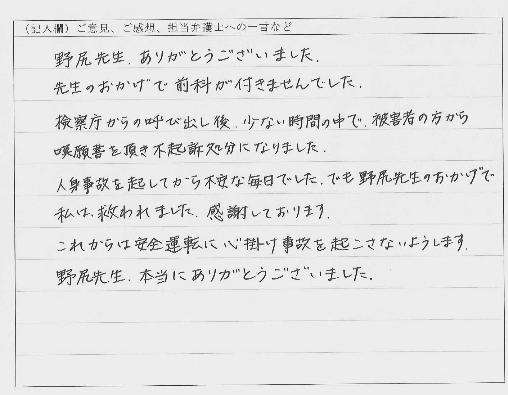 （記入欄）ご意見、ご感想、担当弁護士への一言など
野尻先生、ありがとうございました。
先生のおかげで前科が付きませんでした。
検察庁からの呼び出し後、少ない時間の中で、被害者の方から
嘆願書を頂き不起訴処分になりました。
人身事故を起してから不安な毎日でした。でも野尻先生のおかげで
私は、救われました。感謝しております。
これからは安全運転に心掛け事故を起こさないようします。
野尻先生、本当にありがとうございました。